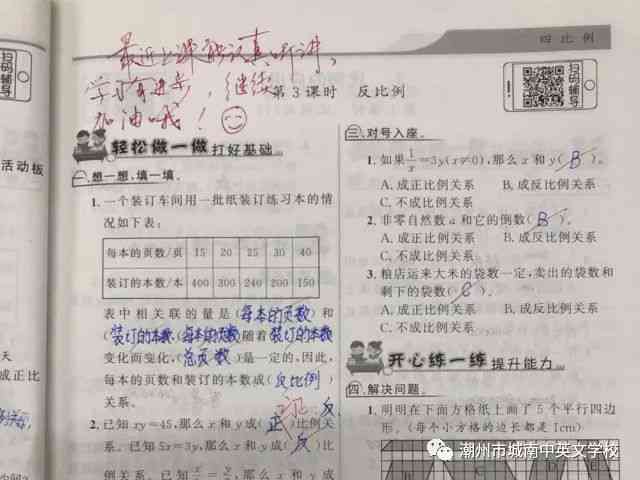 最近上课能认真听讲、
学习有进步，继续
加油哦！
四 比 例
第 3 课时 反比例
扫码辅导
扫码辅导
轻松做一做 打好基础
一、想一想,填一填。
1. 一个装订车间用一批纸装订练习本的情
况如下表:
每本的页数/页 15 20 25 30 40
装订的本数/本 400 300 240 200 150
表中相关联的量是(每本的页数)和
(装订的本数),(每本的页数)随着装订的本数
变化而变化,(总页数)是一定的,因此,
每本的页数和装订的本数成(反比例)
关系。
反
2. 已知 xy=45,那么 x 和 y 成(正)比例关
系。已知 5x=3y,那么 x 和 y 成(反)比
例关系。已知
那么 x 和 y 成
三、对号入座。
1. 如果1/x=3y(x≠0),那么 x 和 y( B )。
A. 成正比例关系 B. 成反比例关系
C. 不成比例关系
2. 非零自然数 a 和它的倒数( B )。
A. 成正比例关系 B. 成反比例关系
C. 不成比例关系
3. 粮店运来大米的袋数一定,卖出的袋数和
剩下的袋数( C )。
A. 成正比例关系 B. 成反比例关系
C. 不成比例关系
开心练一练 提升能力
四、解决问题。
1. 明明在下面方格纸上画了 5 个平行四边
形。(每个小方格的边长都是 1cm)
活动板
天
成正比
潮州市城南中英文学校